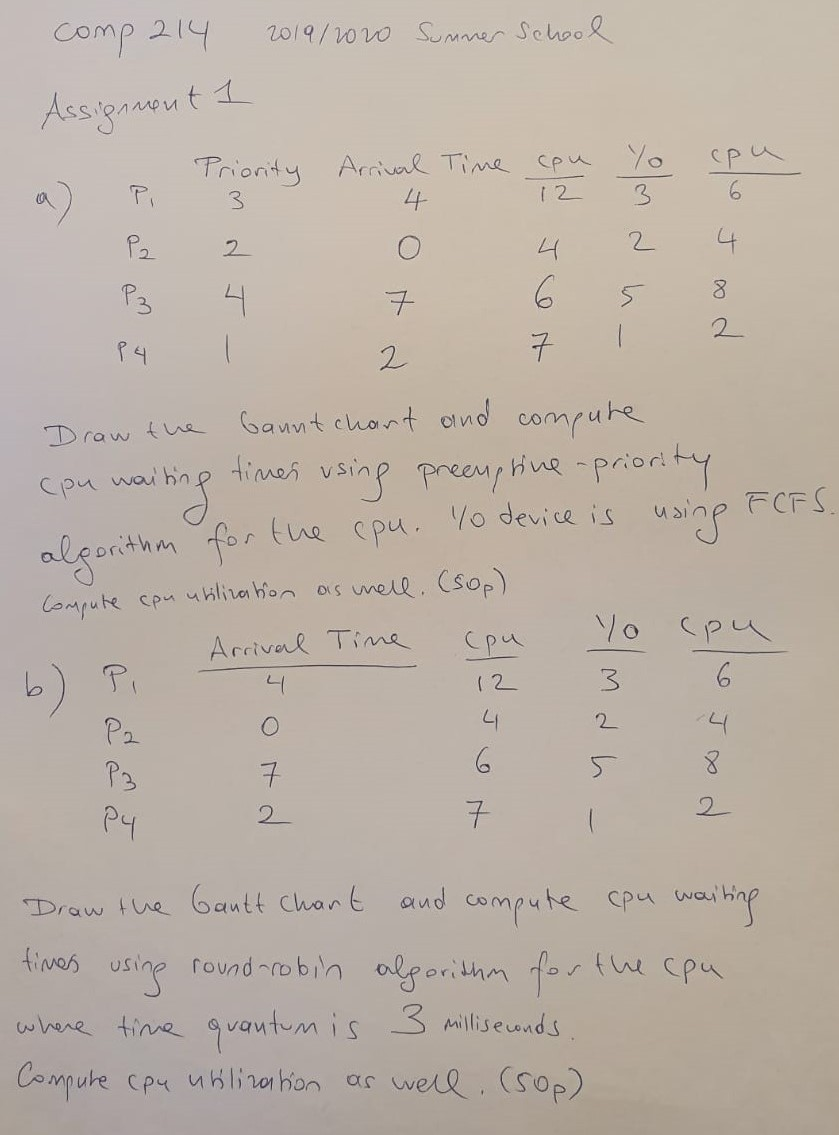 Comp 214 2019/2020 Summer School
Assignment 1
Priority Arrival Time cpu I/o cpu
a) P1 3 4 12 3 6
P2 2 0 4 2 4
P3 4 7 6 5 8
P4 1 2 7 1 2
Draw the Gannt chart and compute
cpu waiting times using preemptive-priority
algorithm for the cpu. I/o device is using FCFS.
Compute cpu utilization as well. (50p)
Arrival Time cpu I/o cpu
b) P1 4 12 3 6
P2 0 4 2 4
P3 7 6 5 8
P4 2 7 1 2
Draw the Gantt chart and compute cpu waiting
times using round-robin algorithm for the cpu
where time quantum is 3 milliseconds.
Compute cpu utilization as well. (50p)